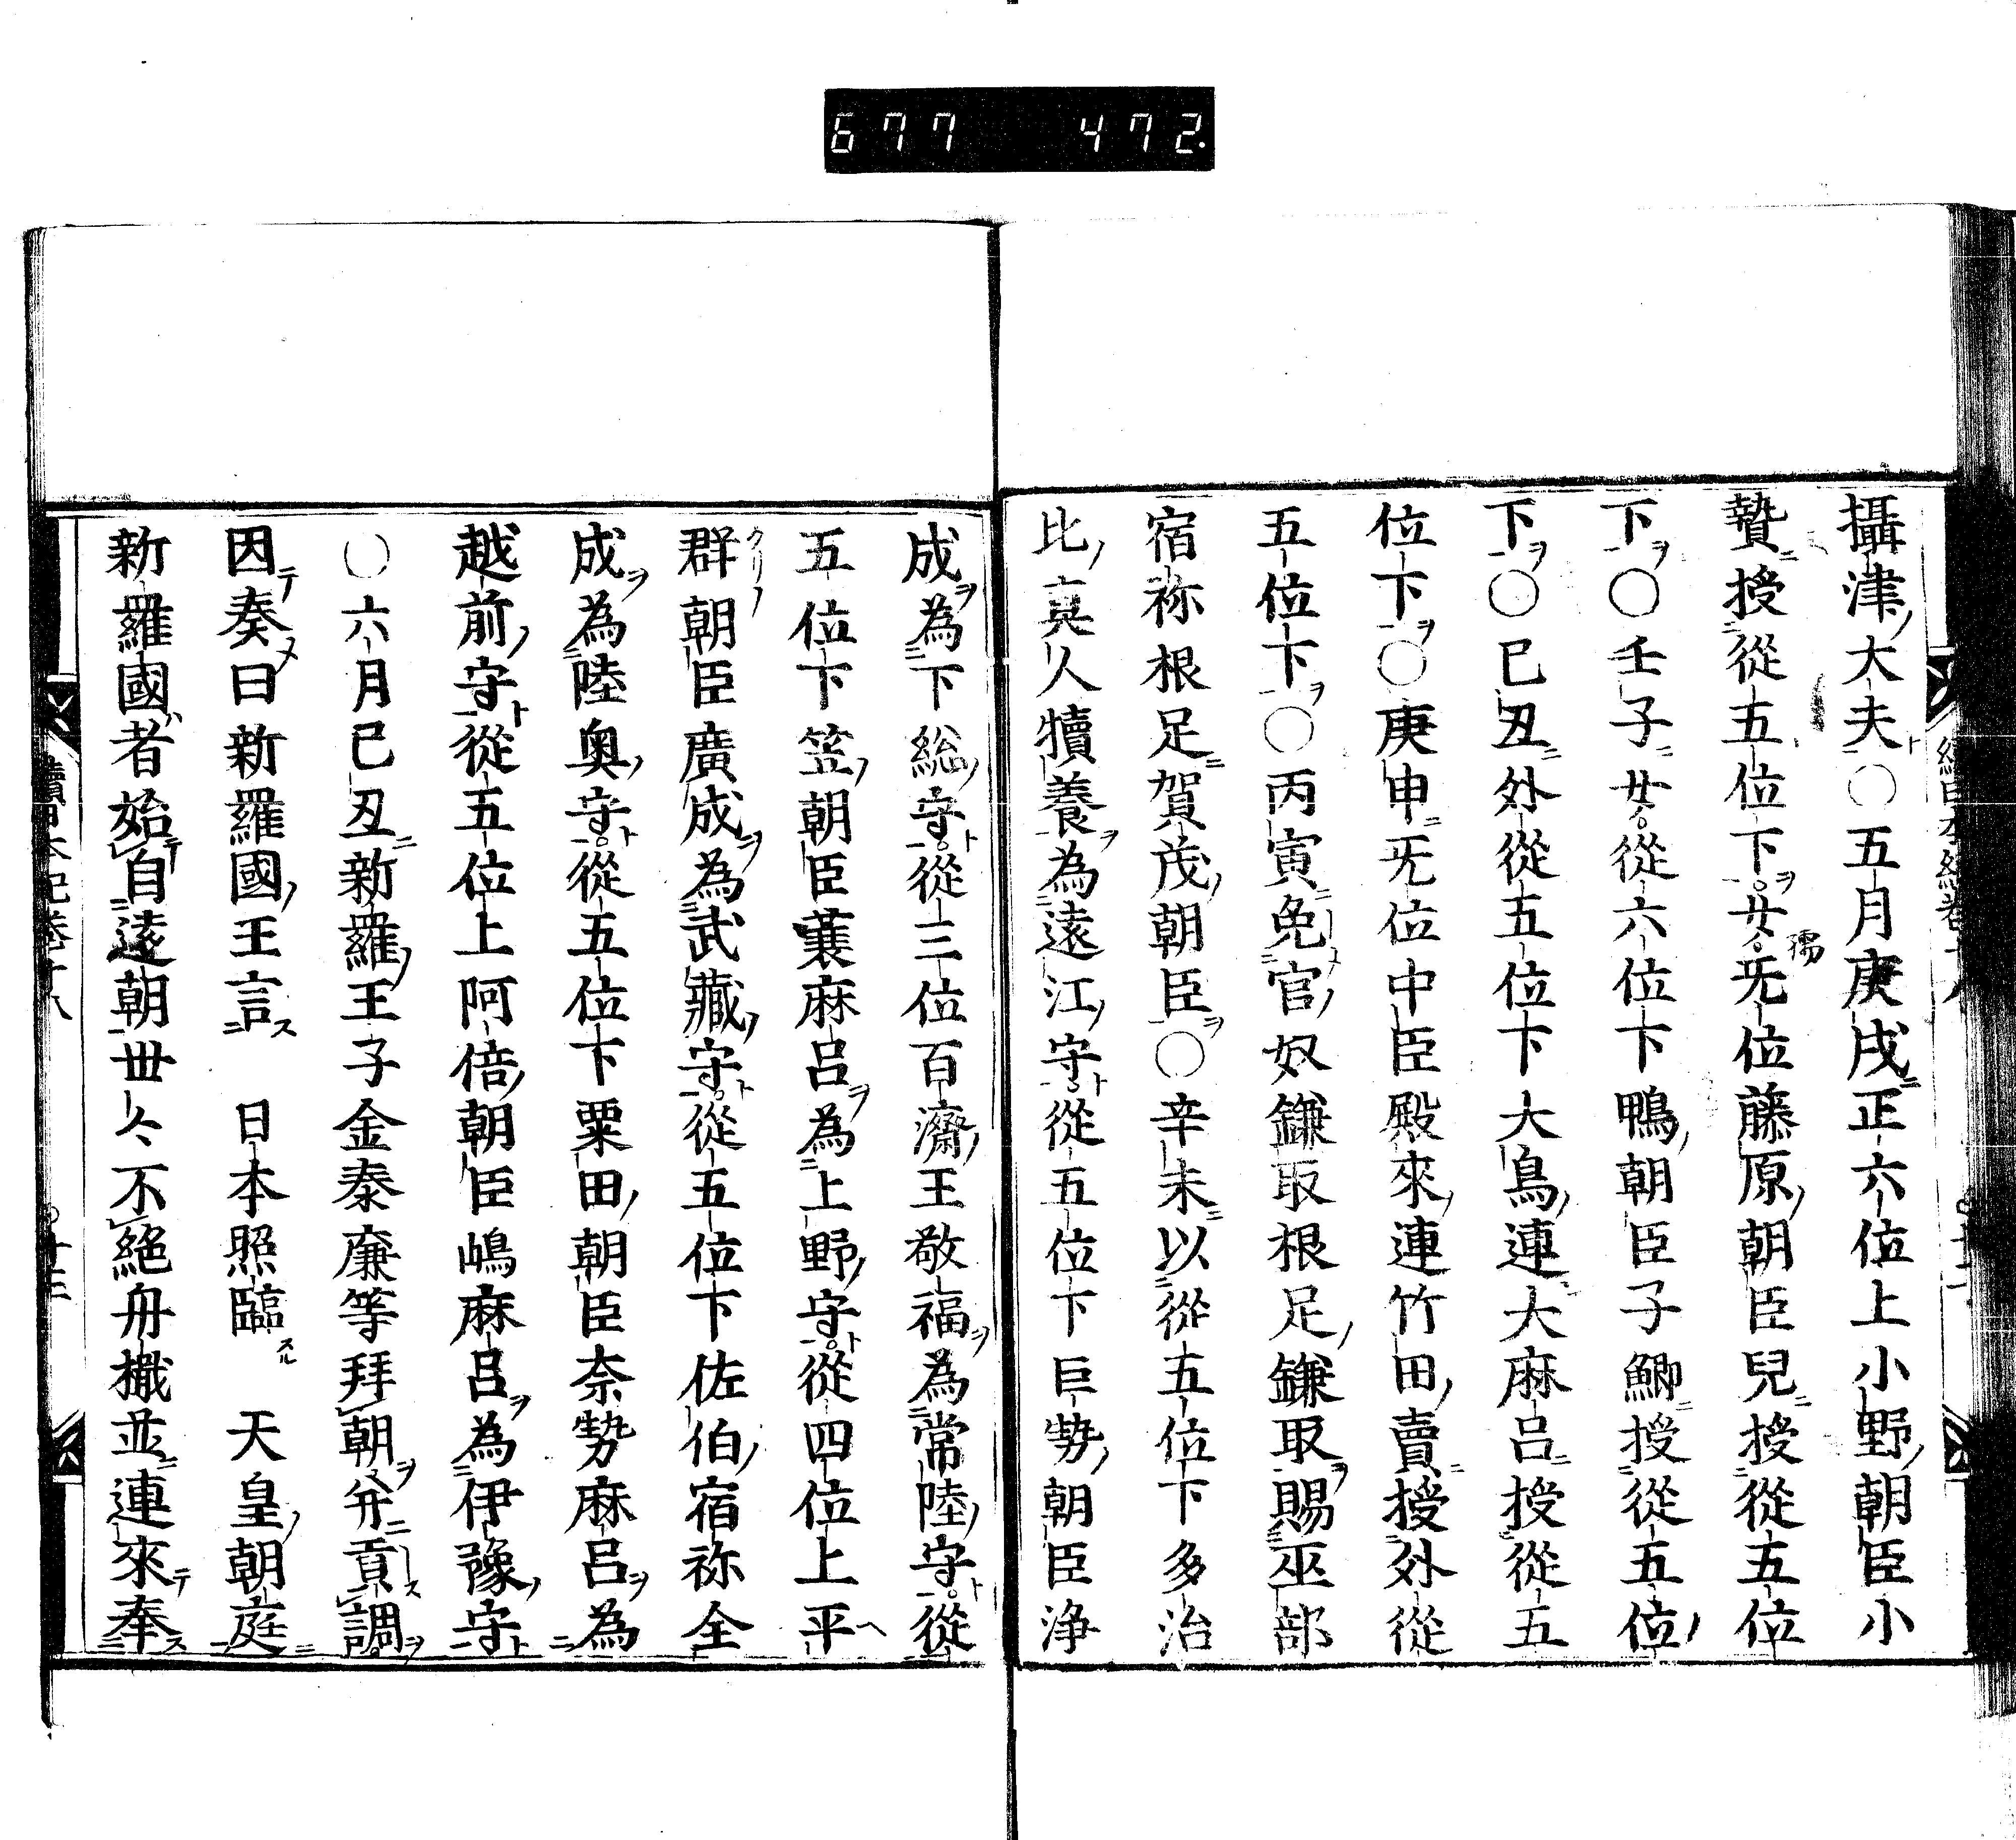 677 472.
攝津大夫〇五月庚戌正六位上小野朝臣小
贄授從五位下女孺无位藤原朝臣兒授從五位
下〇壬子女從六位下鴨朝臣子鯽授從五位
下〇己丑外從五位下大鳥連大麻呂授從五
位下〇庚申无位中臣殿來連竹田賣授外從
五位下〇丙寅免官奴鎌取根足鎌取賜巫部
宿祢根足賀茂朝臣〇辛未以從五位下多治
比真人犢養為遠江守從五位下巨勢朝臣浄
成為下総守從三位百濟王敬福為常陸守從
五位下笠朝臣蓑麻呂為上野守從四位上平
群朝臣廣成為武藏守從五位下佐伯宿祢全
成為陸奥守從五位下粟田朝臣奈勢麻呂為
越前守從五位上阿倍朝臣嶋麻呂為伊豫守
〇六月己丑新羅王子金泰廉等拜朝并貢調
因奏曰新羅國王言 日本照臨 天皇朝庭
新羅國者始自遠朝丗々不絕舟檝並連來奉
續日本紀卷十八